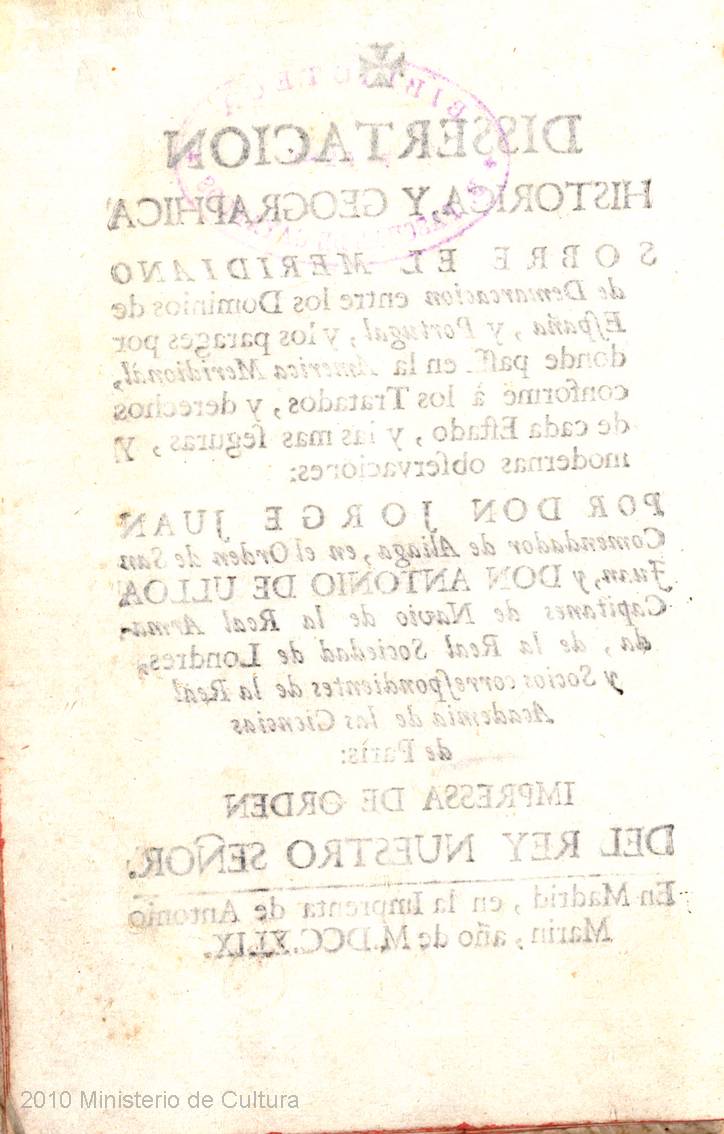 BIBLIOTECA
DISSERTACION
HISTORICA, Y GEOGRAPHICA
SOBRE EL MERIDIANO
de Demarcacion entre los Dominios de
Eſpaña, y Portugal, y los parages por
donde paſſa en la America Meridional,
conforme à los Tratados, y derechos
de cada Eſtado, y las mas ſeguras, y
modernas obſervaciones:
POR DON JORGE JUAN
Comendador de Aliaga, en el Orden de San
Juan, y DON ANTONIO DE ULLOA
Capitanes de Navio de la Real Arma-
da, de la Real Sociedad de Londres,
y Socios correſpondientes de la Real
Academia de las Ciencias
de Paris:
IMPRESSA DE ORDEN
DEL REY NUESTRO SEÑOR.
En Madrid, en la Imprenta de Antonio
Marin, año de M.DCC.XLIX.
2010 Ministerio de Cultura